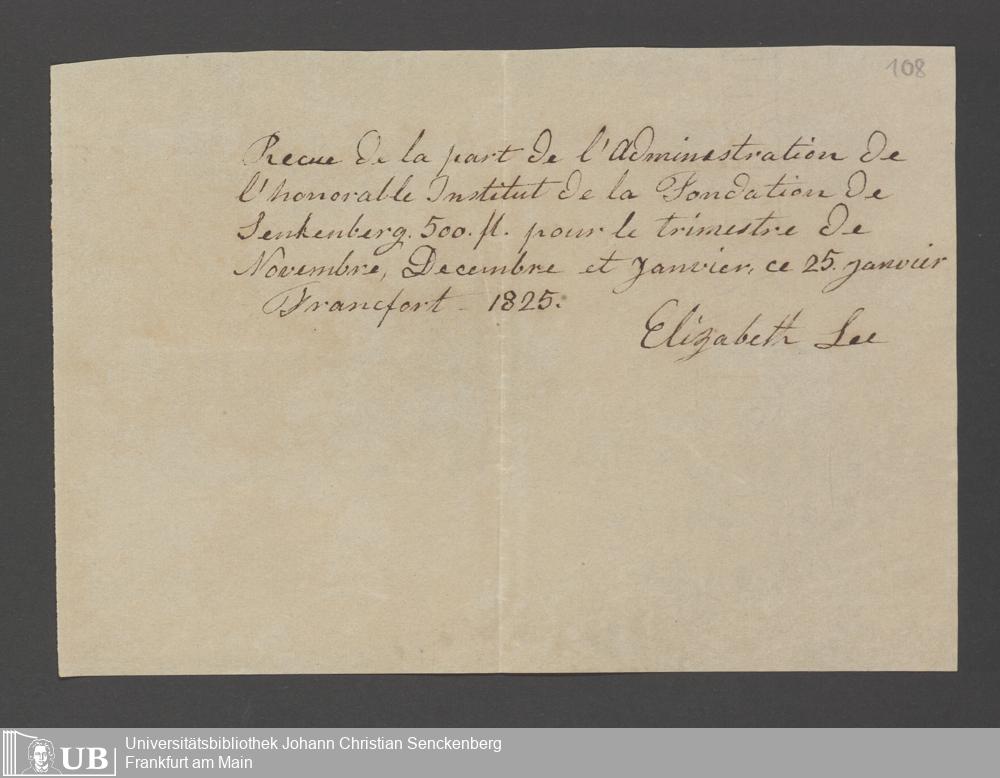 108
Recue de la part de l'Administration de
l'honorable Institut de la Fondation de
Senkenberg. 500. fl. pour le trimestre de
Novembre, Decembre et Janvier, ce 25. janvier
Francfort - 1825.
Elizabeth Lee
UB Universitätsbibliothek Johann Christian Senckenberg
Frankfurt am Main